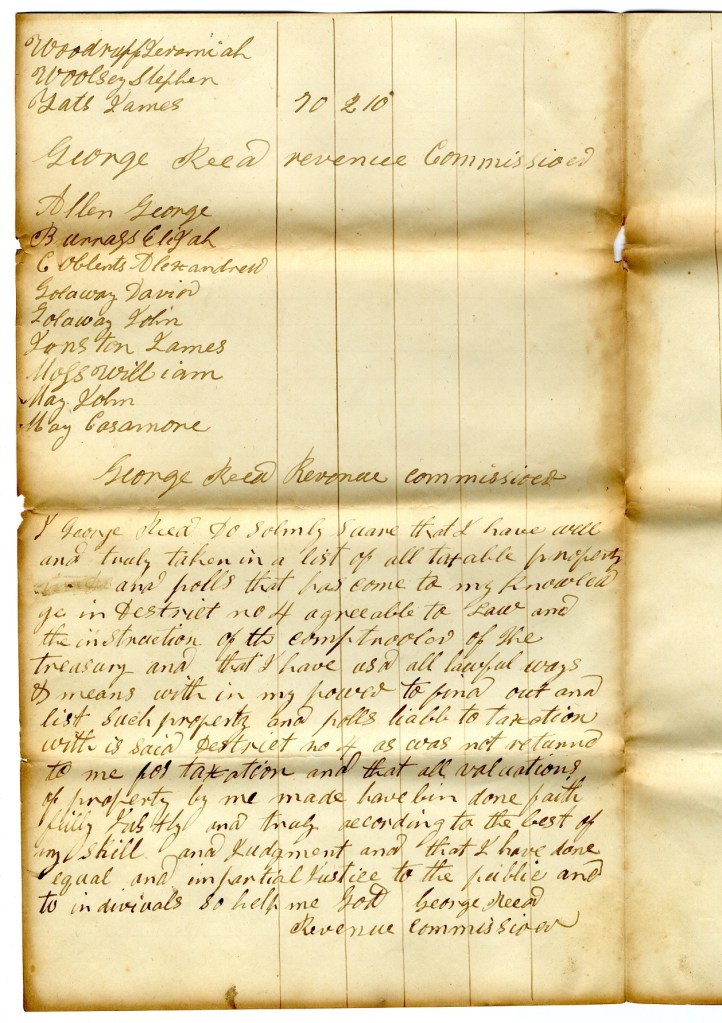 Woodruff Jeremiah
Woolsey Stephen
Yats James 70 2 10
George Reed revenue Commissioed
Allen George
Burnass Elijah
Coblents Alexandrew
Golaway David
Golaway John
Jonston James
Moss william
May John
May Casamore
George Reed Revonue commissioed
I George Reed Do Solmly Suare that I have well
and truly taken in a list of all taxable property
and polls that has come to my Knowled
ge in Destriet no 4 agreeable to Law and
the instruction of the comptrooler of the
treasury and that I have usd all lawful ways
& means with in my power to find out and
list Such property and polls liable to taxation
with is said Destriet no 4 as was not returnd
to me for taxation and that all valuations
of property by me made have bin done faith
fully Justly and truly according to the best of
my skill and Judgment and that I have done
equal and impartial Justice to the public and
to indivivals So help me God George Reed
Revenue commissioed